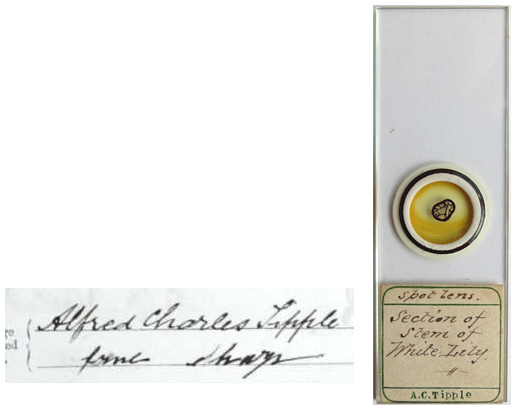 Alfred Charles Tipple
spot lens.
Section of
Stem of
White Lily
"
A.C. Tipple